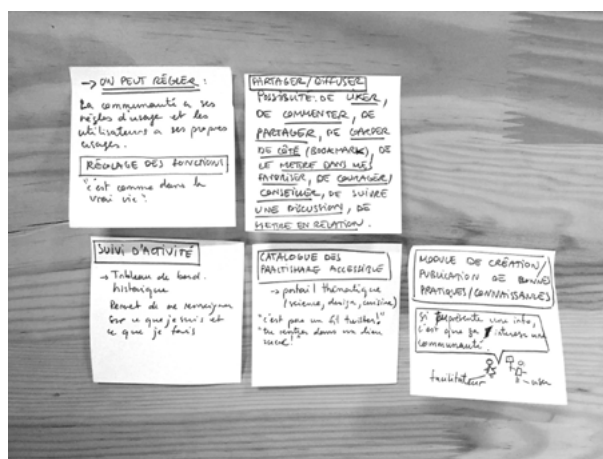 → ON PEUT RÉGLER :
La communauté a ses
règles d'usage et les
utilisateurs a ses propres
usages.
RÉGLAGE DES FONCTIONS
"c'est comme dans la
vrai vie".
PARTAGER/DIFFUSER
POSSIBILITÉ DE LIKER,
DE COMMENTER, DE
PARTAGER, DE GARDER
DE CÔTÉ (BOOKMARK), DE
LE METTRE DANS LES
FAVORISER, DE
CONSEILLER, DE SUIVRE
UNE DISCUSSION, DE
METTRE EN RELATION.
SUIVI D'ACTIVITÉ
→ Tableau de bord.
historique
Permet de me renseigner
sur ce que je suis et
ce que je fais
CATALOGUE DES
PRACTISHARE ACCESSIBLE
→ portail thématique
(science, design, cuisine)
"c'est pas un fil twitter!"
"tu rentres dans un lieu
!"
MODULE DE CRÉATION/
PUBLICATION DE BONNES
PRATIQUES/CONNAISSANCES
Si représente une info,
c'est que ça intéresse une
communauté.
facilitateur
user